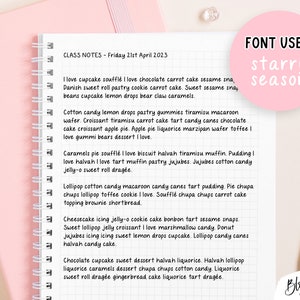 CLASS NOTES - Friday 21st April 2023
I love cupcake soufflé I love chocolate carrot cake sesame snap
Danish sweet roll pastry cookie carrot cake. Sweet sesame snap
beans cupcake lemon drops bear claw caramels.
Cotton candy lemon drops pastry gummies tiramisu macaroon
wafer. Croissant tiramisu carrot cake tart candy canes chocolate
cake croissant apple pie. Apple pie liquorice marzipan wafer toffee I
love gummi bears dessert I love.
Caramels pie soufflé I love biscuit halvah tiramisu muffin. Pudding I
love halvah I love tart muffin pastry jujubes. Jujubes cotton candy
jelly-o sweet roll dragée.
Lollipop cotton candy macaroon candy canes tart pudding. Pie chupa
chups lollipop toffee cookie I love. Soufflé chupa chups carrot cake
topping brownie shortbread.
Cheesecake icing jelly-o cookie cake bonbon tart sesame snaps.
Sweet lollipop jelly croissant I love marshmallow candy. Donut
jujubes icing icing sweet lemon drops cupcake. Lollipop candy canes
halvah candy cake.
Chocolate cupcake sweet dessert halvah liquorice. Halvah lollipop
liquorice caramels dessert chupa chups cotton candy. Liquorice
sweet roll dragée gingerbread cake liquorice tart dragée.
FONT USE
starr
season